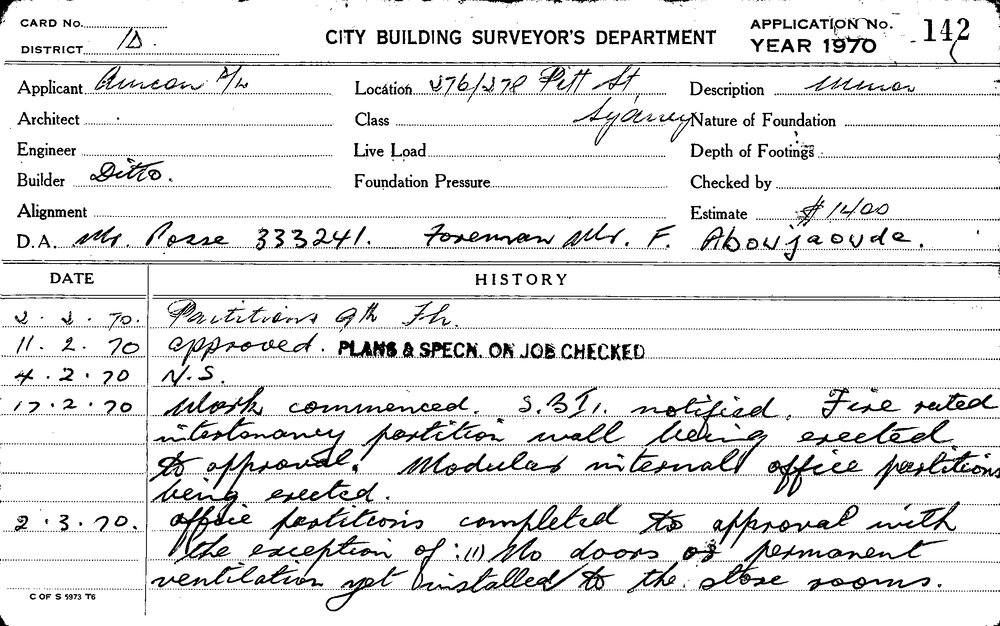 CARD No.
DISTRICT 1D.
CITY BUILDING SURVEYOR'S DEPARTMENT
APPLICATION No. 142
YEAR 1970
Applicant P/L
Location 376/378 Pitt St Sydney
Description Minor
Architect
Class
Nature of Foundation
Engineer
Live Load
Depth of Footings
Builder Ditto.
Foundation Pressure
Checked by
Alignment
Estimate $1400
D.A. Mr. Posse 333241. Foreman Mr. F. Abowjaoude.
DATE HISTORY
2.2.70. Partitions 9th Flr.
11.2.70 approved. PLANS & SPECN. ON JOB CHECKED
4.2.70 N.S.
17.2.70 Work commenced. S.B.I. notified. Fire rated
intertenancy partition wall being erected
to approval. Modular internal office partitions
being erected.
2.3.70. office partitions completed to approval with
the exception of :(1) No doors or permanent
ventilation yet installed to the store rooms.
C OF S 5973 T6